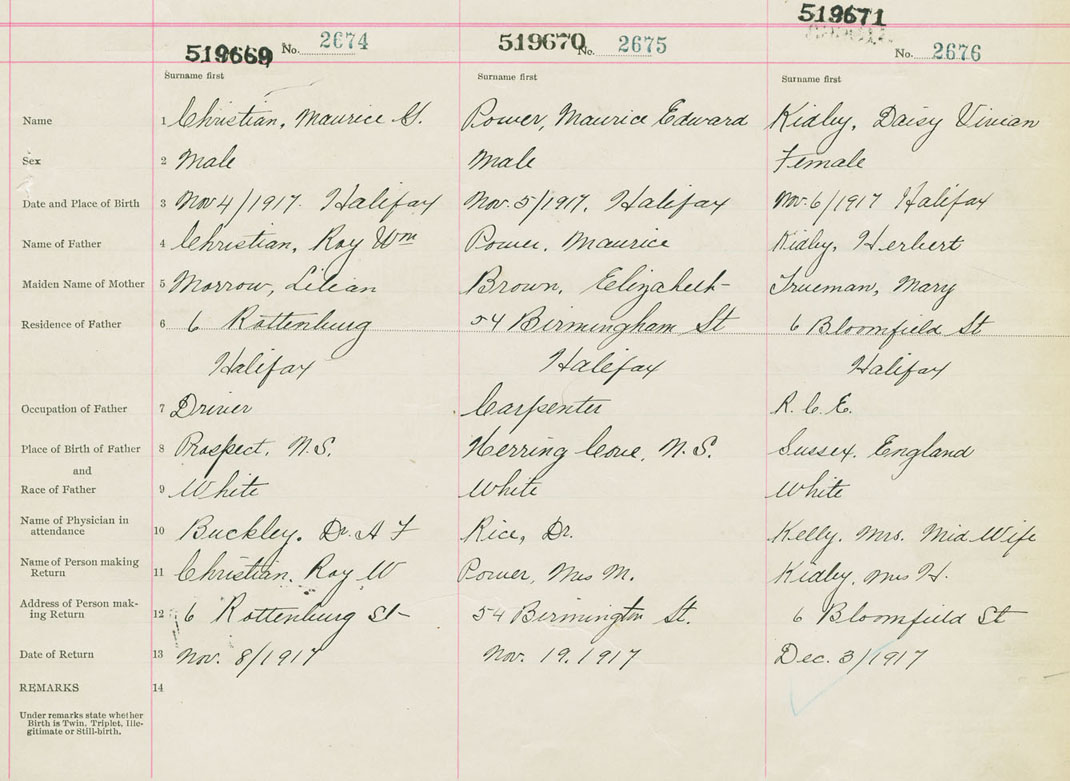 519671
519669 No. 2674 519670 No. 2675 No. 2676
Surname first Surname first Surname first
Name 1 Christian, Maurice G. Power, Maurice Edward Kidby, Daisy Vivian
Sex 2 Male Male Female
Date and Place of Birth 3 Nov 4/1917. Halifax Nov. 5/1917. Halifax Nov. 6/1917 Halifax
Name of Father 4 Christian, Roy Wm Power, Maurice Kidby, Herbert
Maiden Name of Mother 5 Morrow, Lilian Brown, Elizabeth Trueman, Mary
Residence of Father 6 6 Rottenburg 54 Birmingham St 6 Bloomfield St
Halifax Halifax Halifax
Occupation of Father 7 Driver Carpenter R. C. E.
Place of Birth of Father 8 Prospect, N.S. Herring Cove, N.S. Sussex, England
and
Race of Father 9 White White White
Name of Physician in
attendance 10 Buckley. Dr. A F Rice, Dr. Kelly, Mrs. Mid Wife
Name of Person making
Return 11 Christian, Roy W Power, Mrs M. Kidby, Mrs H.
Address of Person mak-
ing Return 12 6 Rottenburg St 54 Birmingtn St. 6 Bloomfield St
Date of Return 13 Nov. 8/1917 Nov. 19. 1917 Dec. 3/1917
REMARKS 14
Under remarks state whether
Birth is Twin, Triplet, Ille-
gitimate or Still-birth.